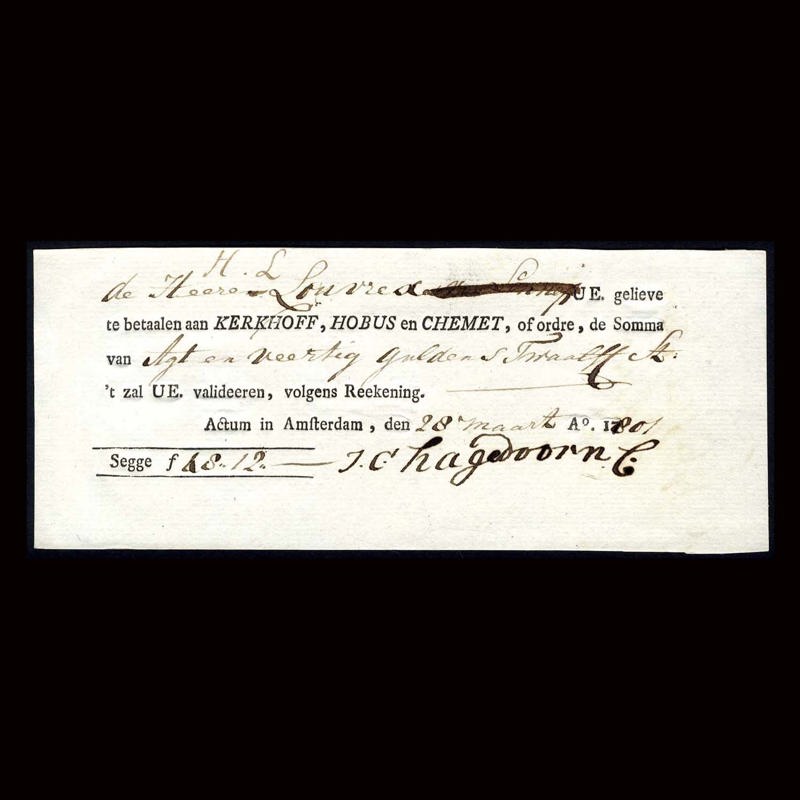 H. L
de Heeren Louvrex UE. gelieve
te betaalen aan KERKHOFF, HOBUS en CHEMET, of ordre, de Somma
van Agt en veertig guldens Twaalff St:
't zal UE. valideeren, volgens Reekening.
Actum in Amsterdam, den 28 maart A°. 1801
Segge f 48.. 12.. — J. C. hagedoorn C.